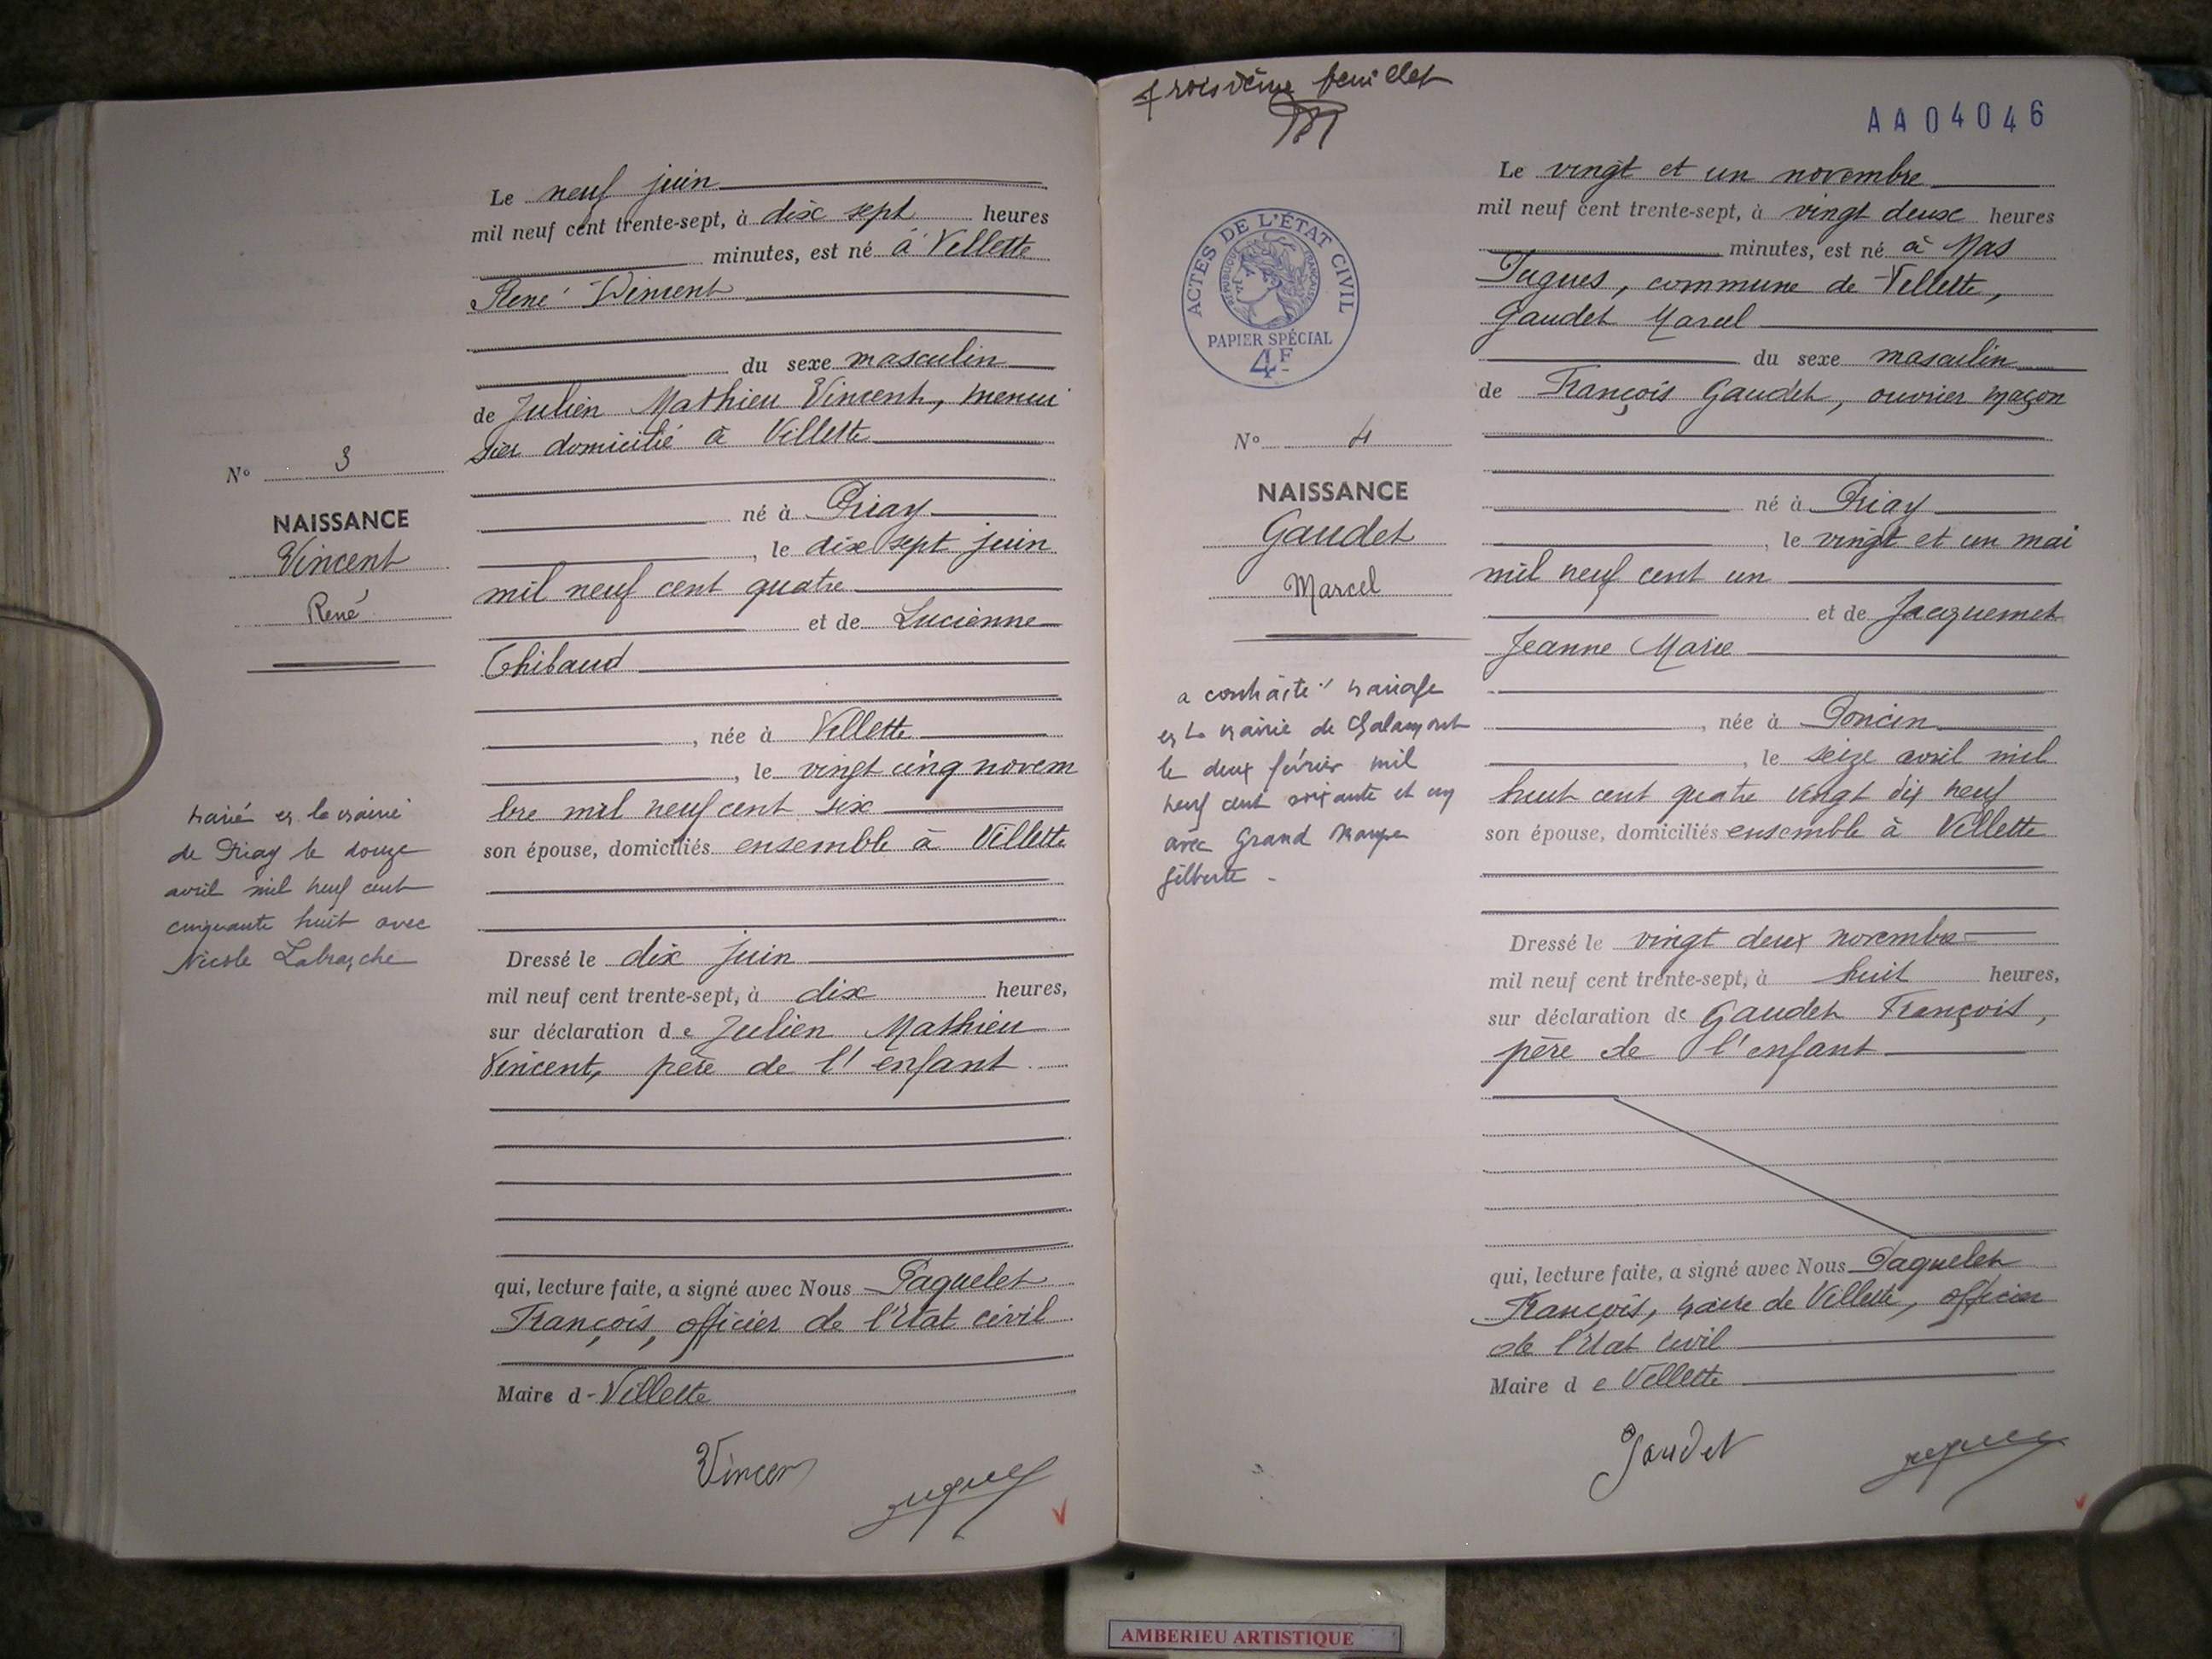 Le neuf juin
mil neuf cent trente-sept, à dix sept heures
minutes, est né à Villette
René Vincent
du sexe masculin
de Julien Mathieu Vincent, menui
sier domicilié à Villette
N° 3
NAISSANCE
Vincent
René
né à Priay
, le dix sept juin
mil neuf cent quatre
et de Lucienne
Thibaud
, née à Villette
, le vingt cinq novem
bre mil neuf cent six
son épouse, domiciliés ensemble à Villette
marié en la mairie
de Priay le douze
avril mil neuf cent
cinquante huit avec
Nicole
Dressé le dix juin
mil neuf cent trente-sept, à dix heures,
sur déclaration de Julien Mathieu
Vincent, père de l'enfant
qui, lecture faite, a signé avec Nous Paquelet
François, officier de l'Etat civil
Maire d - Villette
Vincent
troisième feuillet
AA04046
ACTES DE L'ÉTAT CIVIL
RÉPUBLIQUE FRANÇAISE
PAPIER SPÉCIAL
4F
Le vingt et un novembre
mil neuf cent trente-sept, à vingt deux heures
minutes, est né à Mas
Pugues, commune de Villette,
Gaudet Marcel
du sexe masculin
de François Gaudet, ouvrier maçon
N° 4
NAISSANCE
Gaudet
Marcel
né à Priay
, le vingt et un mai
mil neuf cent un
et de Jacquemet
Jeanne Marie
, née à Poncin
, le seize avril mil
huit cent quatre vingt dix neuf
son épouse, domiciliés ensemble à Villette
a contracté mariage
en la mairie de Chalamont
le deux février mil
neuf cent soixante et un
avec Grand
Gilberte -
Dressé le vingt deux novembre
mil neuf cent trente-sept, à huit heures,
sur déclaration de Gaudet François,
père de l'enfant
qui, lecture faite, a signé avec Nous Paquelet
François, maire de Villette, officier
de l'Etat civil
Maire d e Villette
Gaudet
AMBERIEU ARTISTIQUE